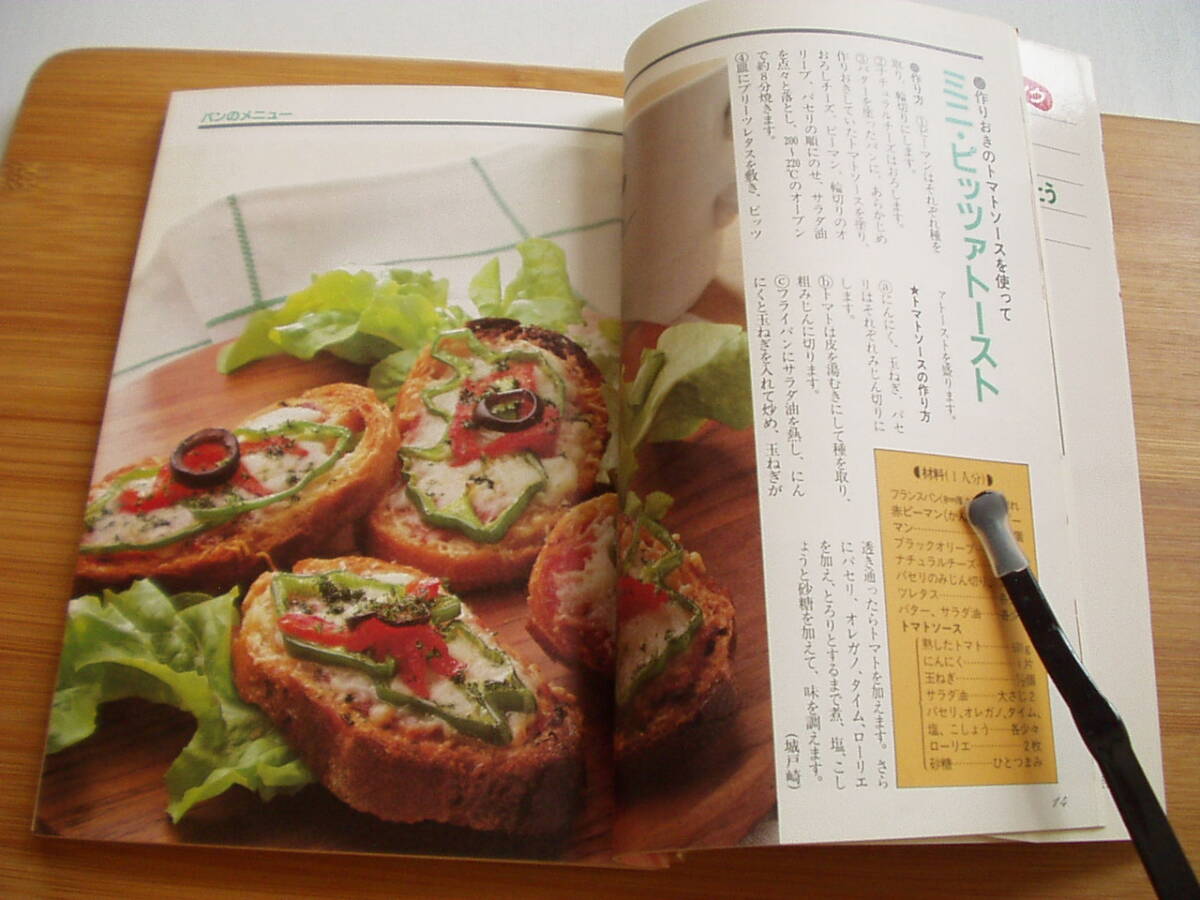 パンのメニュー
●作りおきのトマトソースを使って
ミニ・ピッツァトースト
●作り方 ①ピーマンはそれぞれ種を
取り、輪切りにします。
②ナチュラルチーズはおろします。
③バターを塗ったパンに、あらかじめ
作りおきしていたトマトソースを塗り、
おろしチーズ、ピーマン、輪切りのオ
リーブ、パセリの順にのせ、サラダ油
を点々と落とし、200〜220℃のオーブン
で約8分焼きます。
④皿にプリーツレタスを敷き、ピッツ
ァトーストを盛ります。
★トマトソースの作り方
ⓐにんにく、玉ねぎ、パセ
リはそれぞれみじん切りに
します。
ⓑトマトは皮を湯むきにして種を取り、
粗みじんに切ります。
ⓒフライパンにサラダ油を熱し、にん
にくと玉ねぎを入れて炒め、玉ねぎが
透き通ったらトマトを加えます。さら
にパセリ、オレガノ、タイム、ローリエ
を加え、とろりとするまで煮、塩、こし
ょうと砂糖を加えて、味を調えます。
(城戸崎)
材料(1人分)
フランスパン
赤ピーマン
マン
ブラックオリーブ
ナチュラルチーズ
パセリのみじん切り
ツレタス
バター、サラダ油
トマトソース
熟したトマト
にんにく 1片
玉ねぎ
サラダ油 大さじ2
パセリ、オレガノ、タイム、
塩、こしょう 各少々
ローリエ 2枚
砂糖 ひとつまみ
14